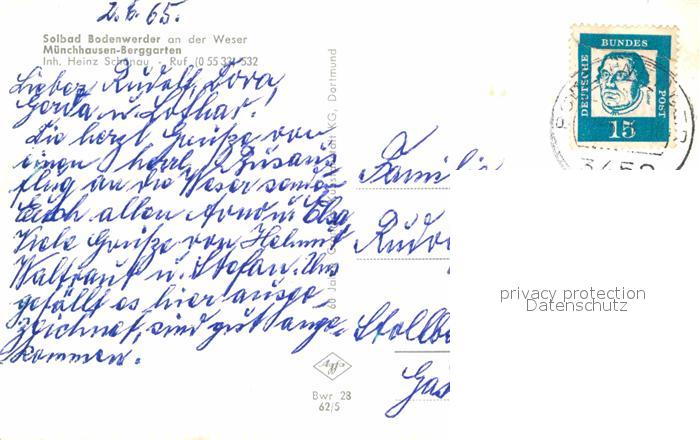 2.6.65.
Solbad Bodenwerder an der Weser
Münchhausen-Berggarten
Inh. Heinz Schönau · Ruf (0 55 33) 532
Lieber Rudolf, Dora,
Gerda u. Lothar!
Die herzl Grüße von
einem herrl. Busaus
flug an die Weser senden
Euch allen Arno u. Elsa
Viele Grüße von Helmut
Waltraut u. Stefan. Uns
gefällt es hier ausge
zeichnet, sind gut ange-
kommen.
60 Jahre KG, Dortmund
Agfa
Bwr 28
62/5
DEUTSCHE
BUNDES
POST
15
3452
Familie
Rudo
Stollb
Gas
privacy protection
Datenschutz